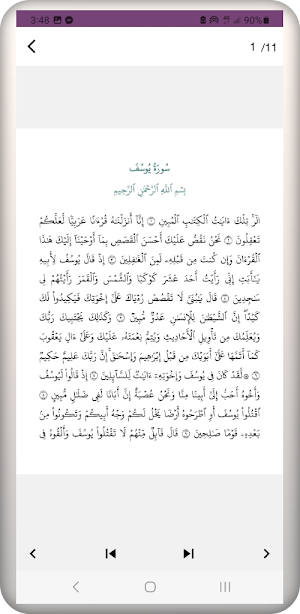 3:48 90%
1 /11
سُورَةُ يُوسُفَ
بِسْمِ ٱللَّهِ ٱلرَّحْمَٰنِ ٱلرَّحِيمِ
الٓرۚ تِلْكَ ءَايَٰتُ ٱلْكِتَٰبِ ٱلْمُبِينِ ١ إِنَّآ أَنزَلْنَٰهُ قُرْءَٰنًا عَرَبِيًّا لَّعَلَّكُمْ
تَعْقِلُونَ ٢ نَحْنُ نَقُصُّ عَلَيْكَ أَحْسَنَ ٱلْقَصَصِ بِمَآ أَوْحَيْنَآ إِلَيْكَ هَٰذَا
ٱلْقُرْءَانَ وَإِن كُنتَ مِن قَبْلِهِۦ لَمِنَ ٱلْغَٰفِلِينَ ٣ إِذْ قَالَ يُوسُفُ لِأَبِيهِ
يَٰٓأَبَتِ إِنِّى رَأَيْتُ أَحَدَ عَشَرَ كَوْكَبًا وَٱلشَّمْسَ وَٱلْقَمَرَ رَأَيْتُهُمْ لِى
سَٰجِدِينَ ٤ قَالَ يَٰبُنَىَّ لَا تَقْصُصْ رُءْيَاكَ عَلَىٰٓ إِخْوَتِكَ فَيَكِيدُوا۟ لَكَ
كَيْدًا ۖ إِنَّ ٱلشَّيْطَٰنَ لِلْإِنسَٰنِ عَدُوٌّ مُّبِينٌ ٥ وَكَذَٰلِكَ يَجْتَبِيكَ رَبُّكَ
وَيُعَلِّمُكَ مِن تَأْوِيلِ ٱلْأَحَادِيثِ وَيُتِمُّ نِعْمَتَهُۥ عَلَيْكَ وَعَلَىٰٓ ءَالِ يَعْقُوبَ
كَمَآ أَتَمَّهَا عَلَىٰٓ أَبَوَيْكَ مِن قَبْلُ إِبْرَٰهِيمَ وَإِسْحَٰقَ ۚ إِنَّ رَبَّكَ عَلِيمٌ حَكِيمٌ
٦ ۞ لَّقَدْ كَانَ فِى يُوسُفَ وَإِخْوَتِهِۦٓ ءَايَٰتٌ لِّلسَّآئِلِينَ ٧ إِذْ قَالُوا۟ لَيُوسُفُ
وَأَخُوهُ أَحَبُّ إِلَىٰٓ أَبِينَا مِنَّا وَنَحْنُ عُصْبَةٌ إِنَّ أَبَانَا لَفِى ضَلَٰلٍ مُّبِينٍ ٨
ٱقْتُلُوا۟ يُوسُفَ أَوِ ٱطْرَحُوهُ أَرْضًا يَخْلُ لَكُمْ وَجْهُ أَبِيكُمْ وَتَكُونُوا۟ مِنۢ
بَعْدِهِۦ قَوْمًا صَٰلِحِينَ ٩ قَالَ قَآئِلٌ مِّنْهُمْ لَا تَقْتُلُوا۟ يُوسُفَ وَأَلْقُوهُ فِى